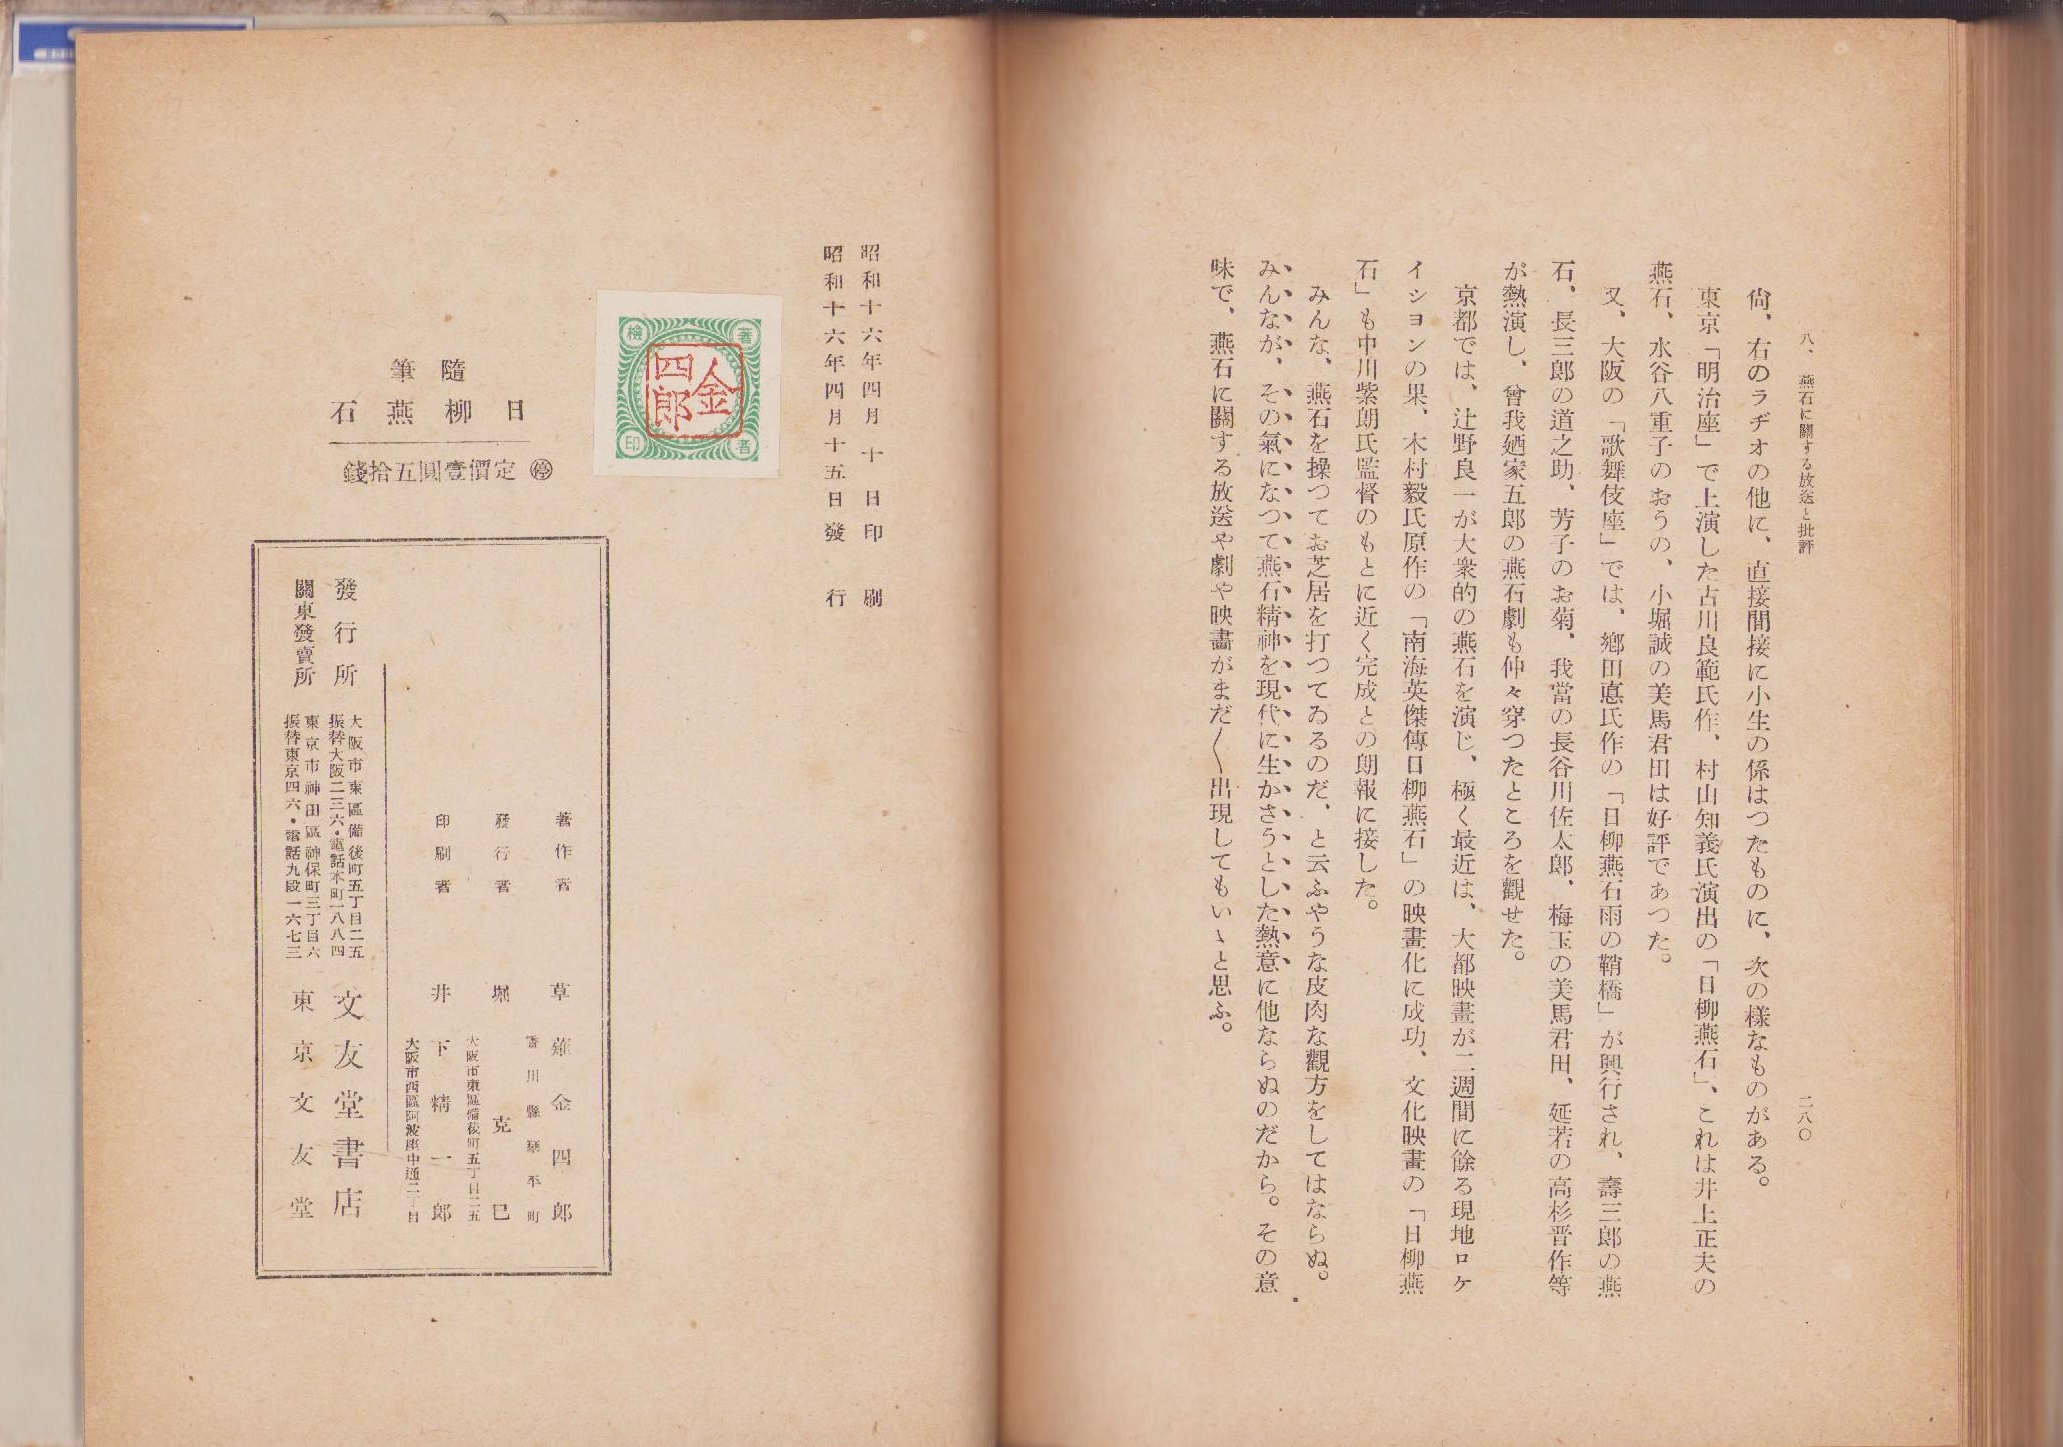 八、燕石に關する放送と批評
二八〇
尙、右のラヂオの他に、直接間接に小生の係はつたものに、次の樣なものがある。
東京「明治座」で上演した古川良範氏作、村山知義氏演出の「日柳燕石」、これは井上正夫の
燕石、水谷八重子のおうの、小堀誠の美馬君田は好評であつた。
又、大阪の「歌舞伎座」では、鄕田悳氏作の「日柳燕石雨の鞘橋」が興行され、壽三郎の燕
石、長三郎の道之助、芳子のお菊、我當の長谷川佐太郎、梅玉の美馬君田、延若の高杉晋作等
が熱演し、曾我廼家五郎の燕石劇も仲々穿つたところを觀せた。
京都では、辻野良一が大衆的の燕石を演じ、極く最近は、大都映畫が二週間に餘る現地ロケ
イシヨンの果、木村毅氏原作の「南海英傑傳日柳燕石」の映畫化に成功、文化映畫の「日柳燕
石」も中川紫朗氏監督のもとに近く完成との朗報に接した。
みんな、燕石を操つてお芝居を打つてゐるのだ、と云ふやうな皮肉な觀方をしてはならぬ。
みんなが、その氣になつて燕石精神を現代に生かさうとした熱意に他ならぬのだから。その意
味で、燕石に關する放送や劇や映畫がまだ〱出現してもいゝと思ふ。
昭和十六年四月十日印刷
昭和十六年四月十五日發行
著者檢印
金四郎
隨筆
日柳燕石
㊡定價壹圓五拾錢
著作者 草薙金四郎
香川縣琴平町
發行者 堀克巳
大阪市東區備後町五丁目二五
印刷者 井下精一郎
大阪市西區阿波座中通二丁目
發行所
大阪市東區備後町五丁目二五
振替大阪二三六・電話本町一八八四
文友堂書店
關東發賣所
東京市神田區神保町三丁目六
振替東京四六・電話九段一六七三
東京文友堂